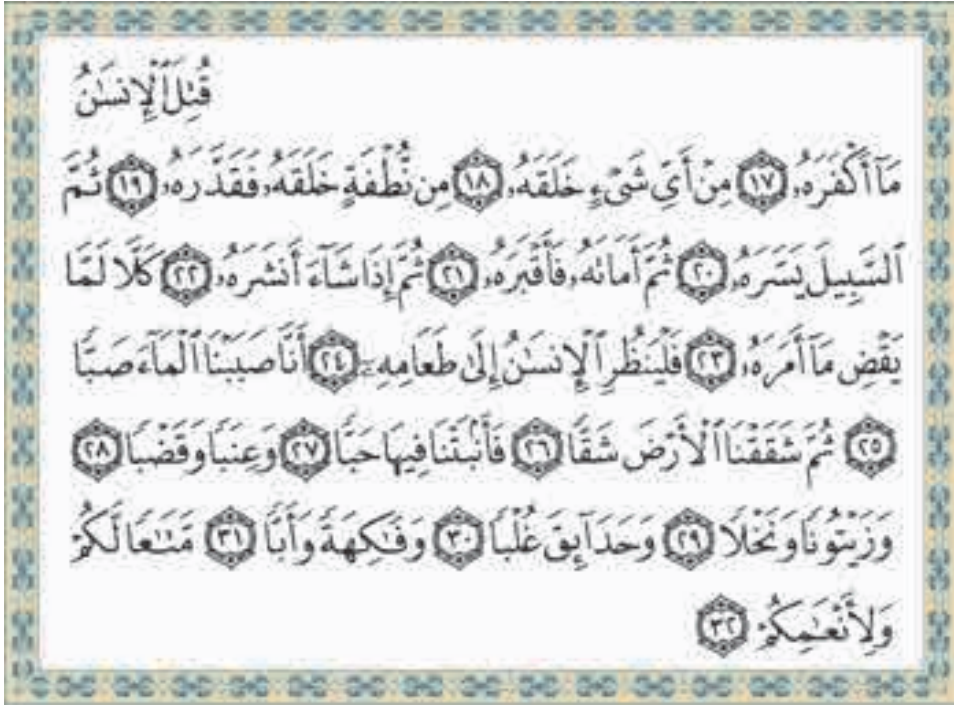 قُتِلَ ٱلْإِنسَٰنُ
مَآ أَكْفَرَهُۥ ١٧ مِنْ أَيِّ شَىْءٍ خَلَقَهُۥ ١٨ مِن نُّطْفَةٍ خَلَقَهُۥ فَقَدَّرَهُۥ ١٩ ثُمَّ
ٱلسَّبِيلَ يَسَّرَهُۥ ٢٠ ثُمَّ أَمَاتَهُۥ فَأَقْبَرَهُۥ ٢١ ثُمَّ إِذَا شَآءَ أَنشَرَهُۥ ٢٢ كَلَّا لَمَّا
يَقْضِ مَآ أَمَرَهُۥ ٢٣ فَلْيَنظُرِ ٱلْإِنسَٰنُ إِلَىٰ طَعَامِهِۦٓ ٢٤ أَنَّا صَبَبْنَا ٱلْمَآءَ صَبًّا
٢٥ ثُمَّ شَقَقْنَا ٱلْأَرْضَ شَقًّا ٢٦ فَأَنۢبَتْنَا فِيهَا حَبًّا ٢٧ وَعِنَبًا وَقَضْبًا ٢٨
وَزَيْتُونًا وَنَخْلًا ٢٩ وَحَدَآئِقَ غُلْبًا ٣٠ وَفَٰكِهَةً وَأَبًّا ٣١ مَّتَٰعًا لَّكُمْ
وَلِأَنْعَٰمِكُمْ ٣٢